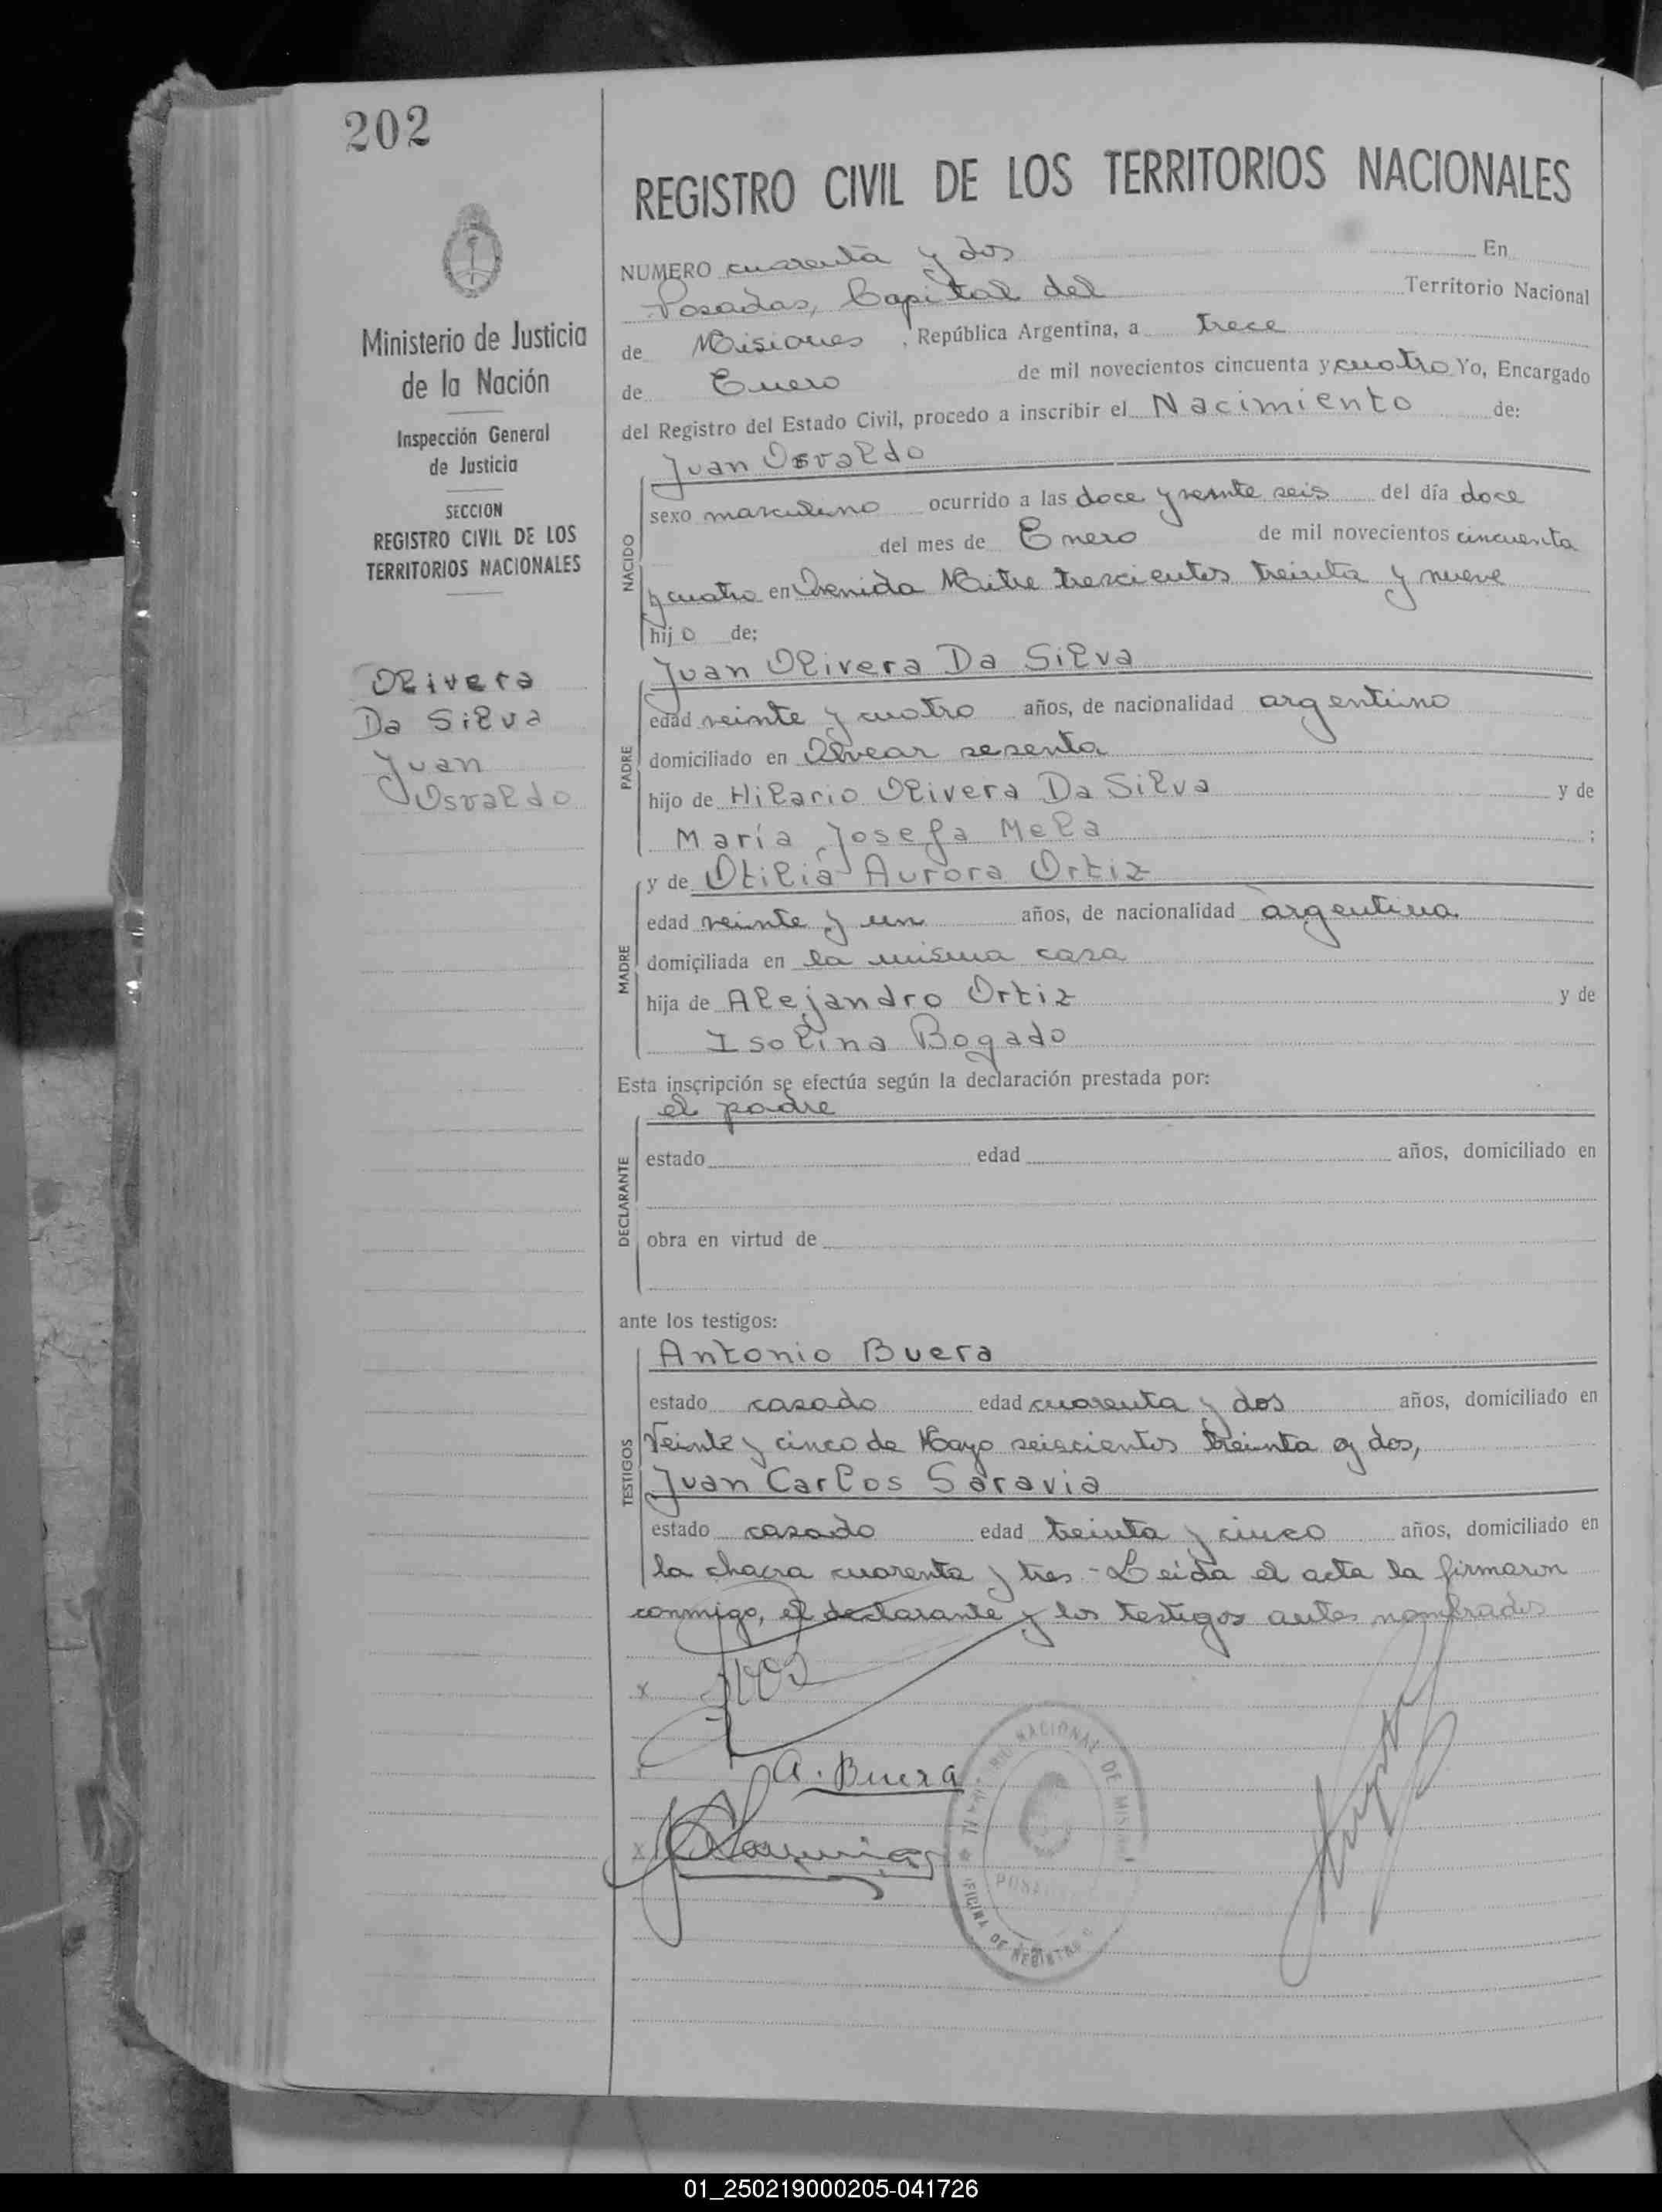 202
Ministerio de Justicia
de la Nación
Inspección General
de Justicia
SECCION
REGISTRO CIVIL DE LOS
TERRITORIOS NACIONALES
Olivera
Da Silva
Juan
Osvaldo
REGISTRO CIVIL DE LOS TERRITORIOS NACIONALES
NUMERO cuarenta y dos En
Posadas, Capital del Territorio Nacional
de Misiones, República Argentina, a trece
de Enero de mil novecientos cincuenta y cuatro Yo, Encargado
del Registro del Estado Civil, procedo a inscribir el Nacimiento de:
Juan Osvaldo
NACIDO
sexo masculino ocurrido a las doce y veinte seis del día doce
del mes de Enero de mil novecientos cincuenta
y cuatro en Avenida Mitre trescientos treinta y nueve
hijo de:
Juan Olivera Da Silva
PADRE
edad veinte y cuatro años, de nacionalidad argentino
domiciliado en Alvear sesenta
hijo de Hilario Olivera Da Silva y de
María Josefa Mela ;
y de Otilia Aurora Ortiz
MADRE
edad veinte y un años, de nacionalidad argentina
domiciliada en la misma casa
hija de Alejandro Ortiz y de
Isolina Bogado
Esta inscripción se efectúa según la declaración prestada por:
el padre
DECLARANTE
estado edad años, domiciliado en
obra en virtud de
ante los testigos:
Antonio Buera
TESTIGOS
estado casado edad cuarenta y dos años, domiciliado en
Veinte y cinco de Mayo seiscientos treinta y dos,
Juan Carlos Saravia
estado casado edad treinta y cinco años, domiciliado en
la chacra cuarenta y tres - Leída el acta la firmaron
conmigo, el declarante y los testigos antes nombrados
x
A. Buera
x
NACIONAL DE
OFICINA DE REGISTRO
01_250219000205-041726